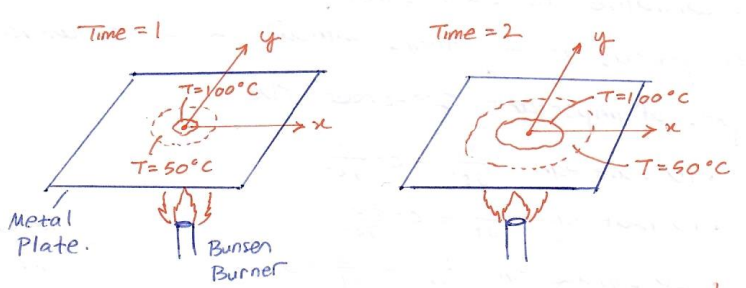 Time = 1
y
T=100°C
x
T=50°C
Metal
Plate.
Bunsen
Burner
Time = 2
y
T=100°C
x
T=50°C